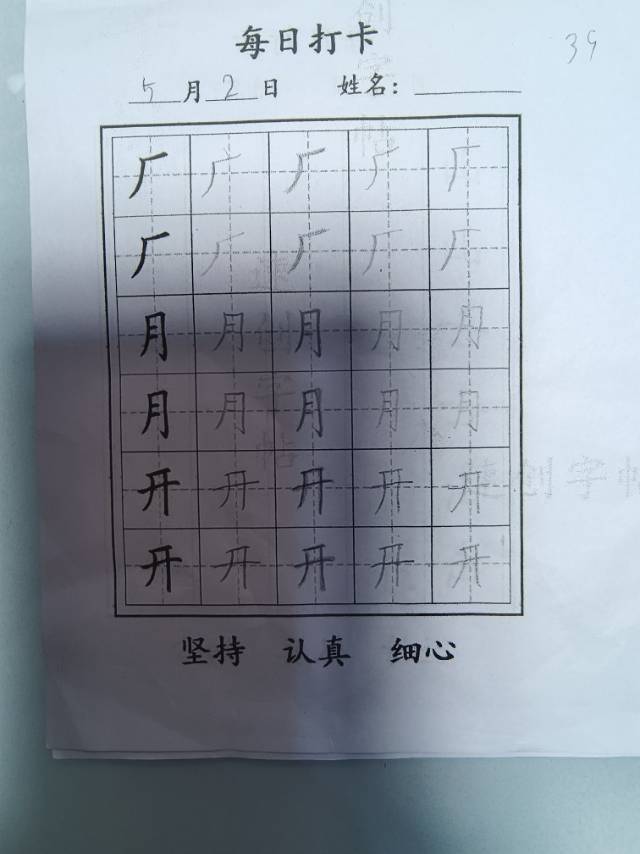 每日打卡
39
5月2日 姓名:
厂 厂 厂 厂 厂
厂 厂 厂 厂 厂
月 月 月 月 月
月 月 月 月 月
开 开 开 开 开
开 开 开 开 开
坚持 认真 细心
创字帖